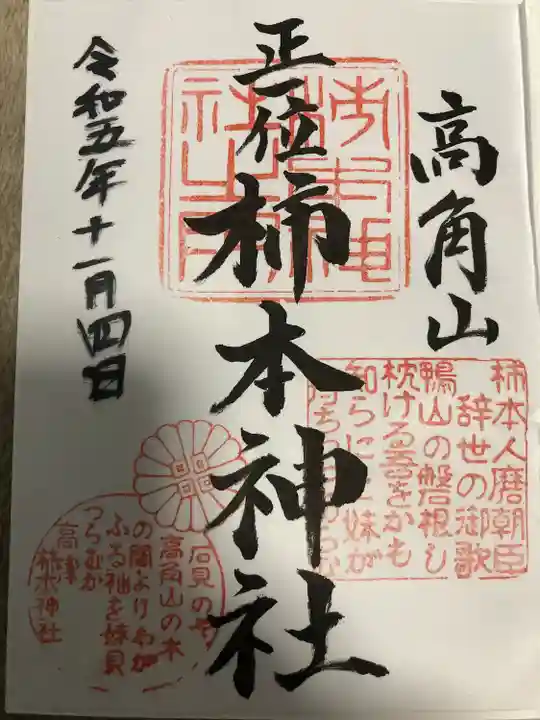 高角山
正一位
柿本神社
令和五年十一月四日
柿本人麿朝臣
辞世の御歌
鴨山の磐根し
枕ける吾をかも
知らに 妹が
石見のや
高角山の木
の間よりわが
ふる袖を妹見
つらむか
高津
柿本神社